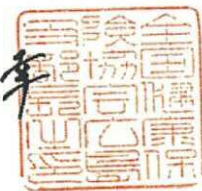 全国健康保
険協会広島
支部長之印